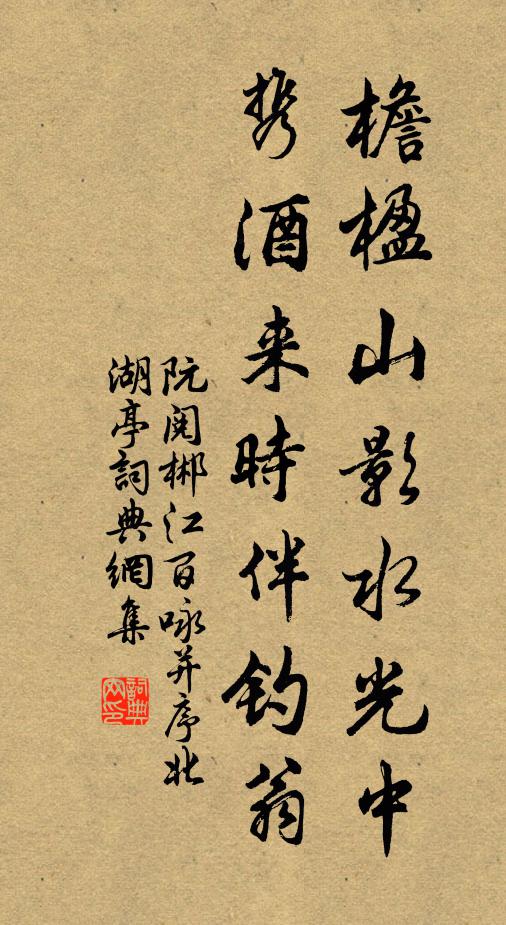 檐楹山影水光中
携酒来時伴钓翁
阮阅郴江百咏并序北
湖亭詞典網集
詞典
网印